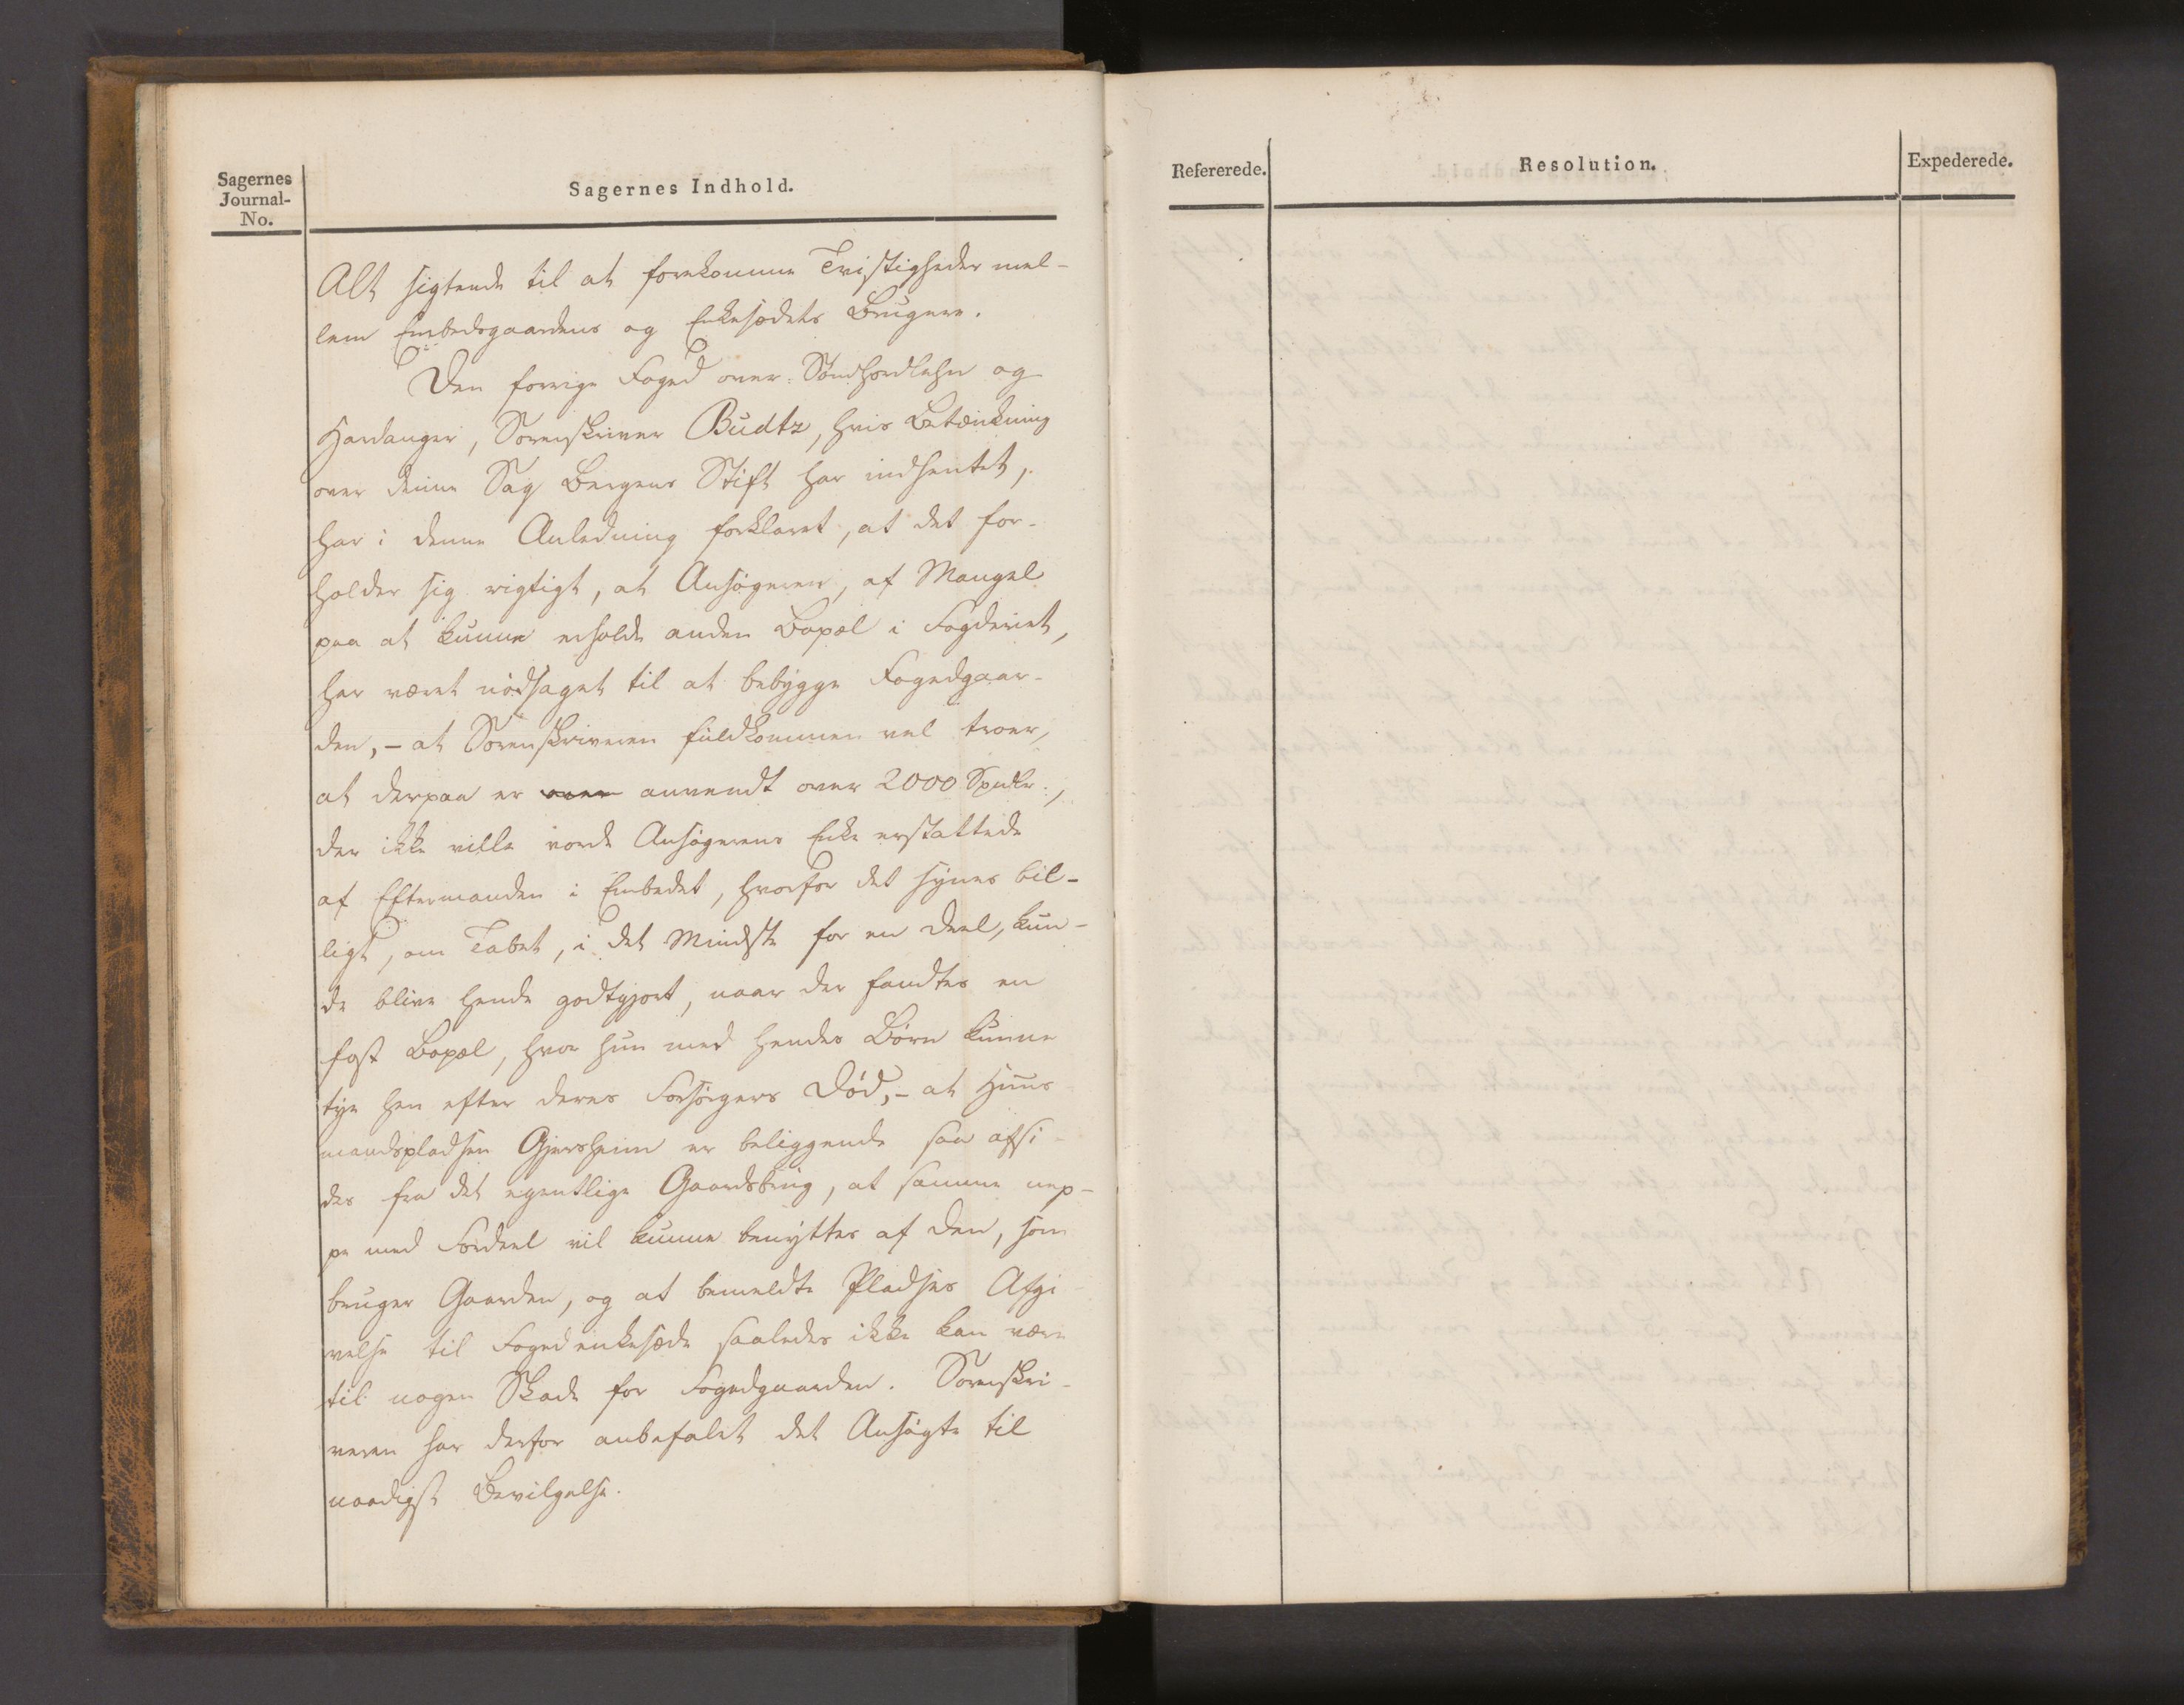 Sagernes
Journal-
No.
Sagernes Indhold.
Alt sigtende til at forekomme Tvistigheder mel-
lem Embedsgaardens og Enkesædets Brugere.
Den forrige Foged over Søndhordlehn og
Hardanger, Sorenskriver Budtz, hvis Betænkning
over denne Sag Bergens Stift har indhentet,
har i denne Anledning forklaret, at det for-
holder sig rigtigt, at Ansøgeren, af Mangel
paa at kunne erholde anden Bopæl i Fogderiet,
har været nødsaget til at bebygge Fogedgaar-
den, - at Sorenskriveren fuldkommen vel troer,
at derpaa er over anvendt over 2000 Spdlr.,
der ikke ville vorde Ansøgerens Enke erstattede
af Eftermanden i Embedet, hvorfor det synes bil-
ligt, om Tabet, i det Mindste for en Deel, kun-
de blive hende godtgjort, naar der fandtes en
fast Bopæl, hvor hun med hendes Børn kunne
tye hen efter deres Forsørgers Død, - at Huus
mandspladsen Gjersheim er beliggende saa afsi-
des fra det egentlige Gaardsbrug, at samme nep-
pe med Fordeel vil kunne benyttes af den, som
bruger Gaarden, og at bemeldte Pladses Afgi
velse til Fogedenkesæde saaledes ikke kan være
til nogen Skade for Fogedgaarden. Sorenskri-
veren har derfor anbefalet det Ansøgte til
naadigst Bevilgelse.
Refererede.
Resolution.
Expederede.